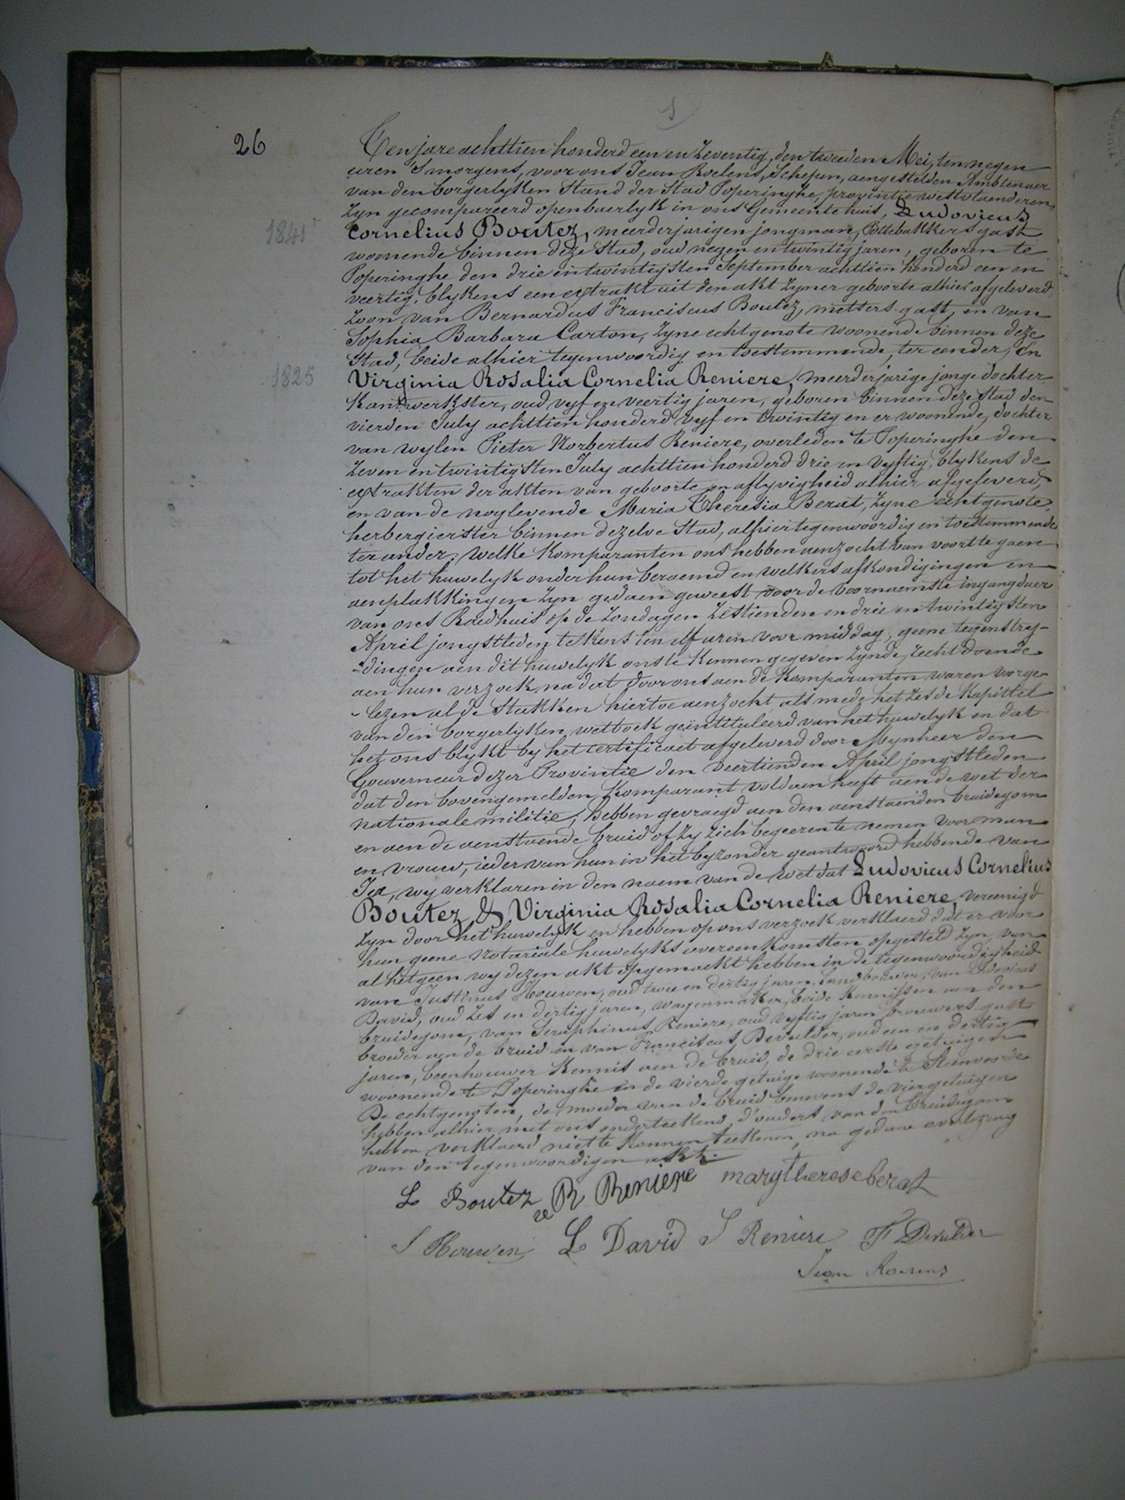 26
Ten jare achttien honderd een en zeventig, den tweeden Mei, ten negen
uren 's morgens, voor ons Jean Roelens, Schepen, aengestelden Amblenaer
van den borgerlyken Stand der Stad Poperinghe, provintie westvlaenderen
zyn gecompareerd openbaerlyk in ons Gemeentehuis, Ludovicus
1841
Cornelius Boutez, meerderjarigen jongman, Bakkers gast
woonende binnen deze Stad, oud negen en twintig jaren, geboren te
Poperinghe den drie en twintigsten September achttien honderd een en
veertig, blykens een extrakt uit den akt zyner geboorte alhier afgeleverd
zoon van Bernardus Franciscus Boutez, metsers gast, en van
Sophia Barbara Carton, zyne echtgenote woonende binnen deze
Stad, beide alhier tegenwoordig en toestemmende, ter eender, En
1825
Virginia Rosalia Cornelia Reniere, meerderjarige jonge dochter
Kantwerkster, oud vyf en veertig jaren, geboren binnen deze Stad den
vierden July achttien honderd vyf en twintig en er woonende, dochter
van wylen Pieter Norbertus Reniere, overleden te Poperinghe den
zeven en twintigsten July achttien honderd drie en vyftig, blykens de
extrakten der akten van geboorte en aflyvigheid alhier afgeleverd
en van de noglevende Maria Theresia Berat, zyne echtgenote,
herbergierster binnen dezelve Stad, alhier tegenwoordig en toestemmende
ter ander; welke Komparanten ons hebben aenzocht van voort te gaen
tot het huwelyk onder hun beraemd en welkers afkondigingen en
aenplakkingen zyn gedaen geweest voor de voornaemste ingangdeur
van ons Raedhuis op de zondagen zestienden en drie en twintigsten
April jongstleden telkens ten elf uren voor middag, geene tegenstrey-
-dingen aen dit huwelyk ons te kennen gegeven zynde, recht doende
aen hun verzoek, na dat door ons aen de Komparanten waren voorge-
-lezen al de Stukken hiertoe aenzocht, als mede het zesde Kapittel
van den borgerlyken wetboek geintituleerd van het huwelyk en dat
het ons blykt by het certificaet afgeleverd door Mynheer den
Gouverneur dezer Provintie den veertienden April jongstleden
dat den bovengemelden Komparant voldaen heeft aen de wet der
nationale militie, hebben gevraegd aen den aenstaenden bruidegom
en aen de aenstaende bruid of zy zich begeeren te nemen voor man
en vrouw, ieder van hun in het byzonder geantwoord hebbende van
Ja, wy verklaren in den naem van de wet dat Ludovicus Cornelius
Boutez & Virginia Rosalia Cornelia Reniere vereenigd
zyn door het huwelyk en hebben op ons verzoek verklaerd dat er voor
hun geene Notariale huwelyks overeenkomsten opgesteld zyn, van
al hetgeen wy dezen akt opgemaekt hebben in de tegenwoordigheid
van Justinus Houwen, oud twee en dertig jaren, landbouwer, van
David, oud zes en dertig jaren, wagenmaker, beide kennissen aen den
bruidegom, van Seraphinus Reniere, oud vyftig jaren brouwers gast
broeder aen de bruid en van Franciscus Devulder, oud een en dertig
jaren, beenhouwer kennis aen de bruid, de drie eerste getuigen
woonende te Poperinghe en de vierde getuige woonende te Steenvoorde
De echtgenoten, de moeder van de bruid benevens de vier getuigen
hebben alhier met ons onderteekend, d'ouders van den bruidegom
hebben verklaerd niet te konnen teekenen, na gedane voorlezing
van den tegenwoordigen akt.
L Boutez R Reniere marytheresebe rat
J Houwen L David S Reniere F Devulder
Jean Roelens